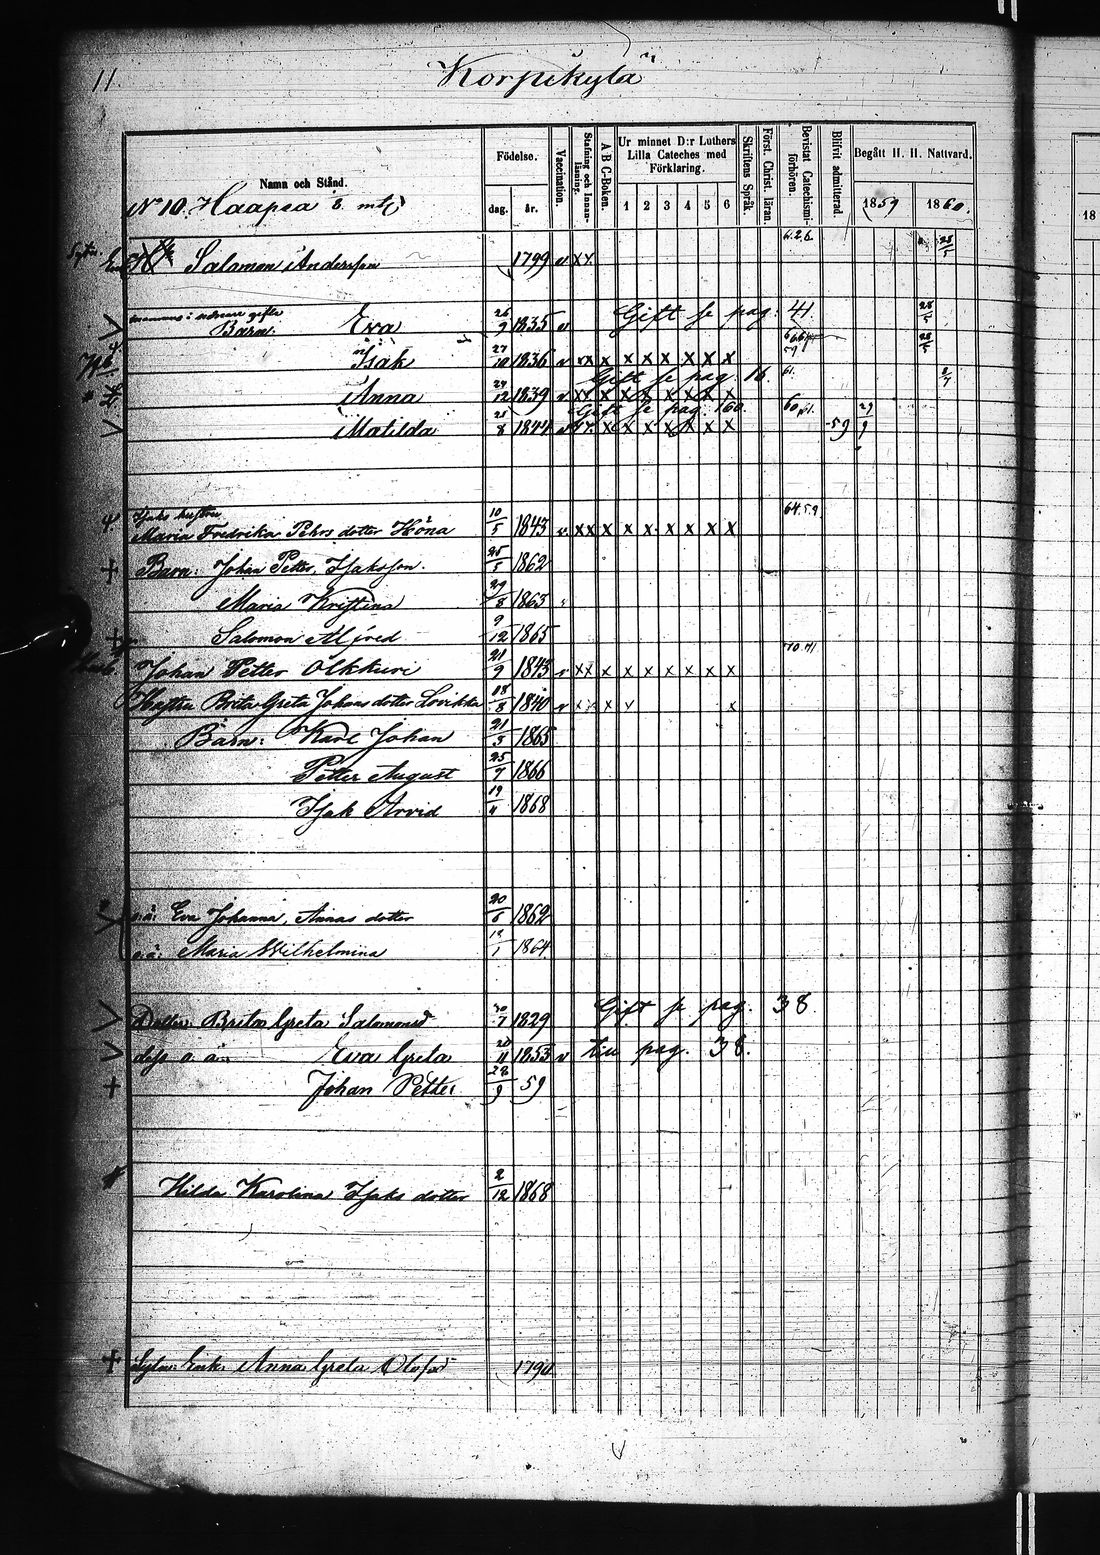 11.
Korpikylä
Namn och Stånd.
Födelse.
dag. år.
Vaccination.
Stafning och Innanläsning.
A B C-Boken.
Ur minnet D:r Luthers Lilla Cateches med Förklaring.
1 2 3 4 5 6
Skriftens Språk.
Först. Christ. läran.
Bevistat Catechismiförhören.
Blifvit admitterad.
Begått H. H. Nattvard.
1859 1860.
No 10. Haapsa
Salomon Andersson 1799 v x x
Barn: Eva 26/9 1835 v Gift se pag: 41 28/5
Isak 27/10 1836 v x x x x x x x x x 28/5
Gift se pag. 16. 61.
Anna 24/12 1839 v x x x x x x x x x 2/7
Gift se pag. 160
Matilda 25/8 1844 x x x x x x x 59
Isaks hustru 64.59
Maria Fredrika Pehrs dotter Höna 10/5 1843 v x x x x x x x x x
Barn: Johan Petter Isaksson. 25/5 1862
Maria Kristina 29/8 1863
Salomon Alfred 9/12 1865
Johan Petter Olkkuri 21/9 1843 v x x x x x x x x x
Hustru Brita Greta Johans dotter Lovikka 18/8 1840 v x x x x x
Barn: Karl Johan 21/3 1865
Petter August 25/7 1866
Isak Arvid 19/4 1868
o.ä: Eva Johanna, Annas dotter 20/6 1862
o.ä: Maria Wilhelmina 1864
Dotter: Brita Greta Salomonsd 1829 Gift se pag. 38
dess o. ä: Eva Greta 20/11 1853 v till pag. 38.
Johan Petter 28/9 59
Hilda Karolina Isaks dotter 2/12 1868
Anna Greta Olofsd 1790